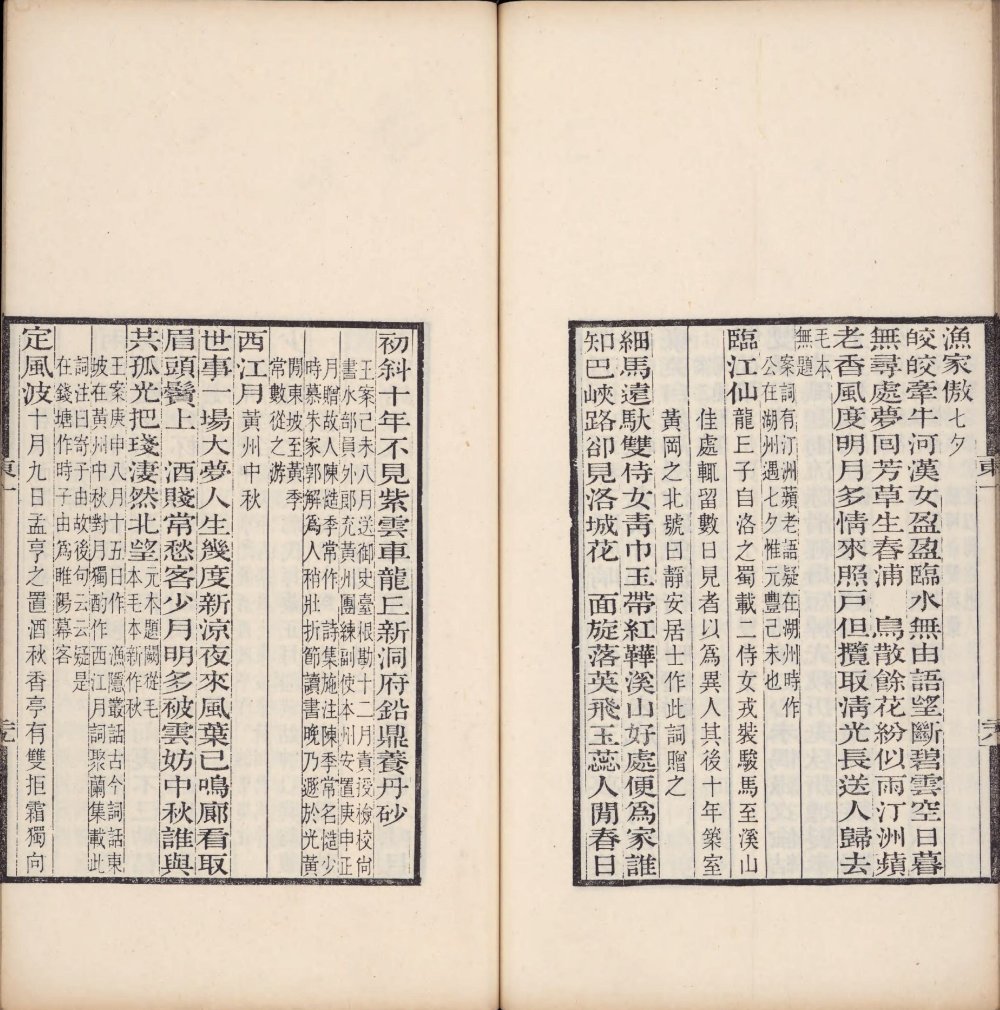 漁家傲七夕
皎皎牽牛河漢女盈盈臨水無由語望斷碧雲空日暮
無尋處夢回芳草生春浦　鳥散餘花紛似雨汀洲蘋
老香風度明月多情來照戶但攬取清光長送人歸去
毛本
無題
案詞有汀洲蘋老語疑在湖州時作
公在湖州遇七夕惟元豐己未也
臨江仙龍丘子自洛之蜀載二侍女戎裝駿馬至溪山
佳處輒留數日見者以為異人其後十年築室
黃岡之北號曰靜安居士作此詞贈之
細馬遠馱雙侍女青巾玉帶紅鞾溪山好處便為家誰
知巴峽路卻見洛城花　面旋落英飛玉蕊人閒春日
東一
初斜十年不見紫雲車龍丘新洞府鉛鼎養丹砂
王案己未八月送御史臺根勘十二月責授檢校尚
書水部員外郎充黃州團練副使本州安置庚申正
月贈故人陳慥季常作　詩集施注陳季常名慥少
時慕朱家郭解為人稍壯折節讀書晚乃遯於光黃
閒東坡至黃季
常數從之游
西江月黃州中秋
世事一場大夢人生幾度新涼夜來風葉已鳴廊看取
眉頭鬢上　酒賤常愁客少月明多被雲妨中秋誰與
共孤光把琖淒然北望
元本題闕從毛
本毛本新作秋
王案庚申八月十五日作漁隱叢話古今詞話東
坡在黃州中秋對月獨酌作西江月詞聚蘭集載此
詞注曰寄子由故後句云云疑是
在錢塘作時子由為睢陽幕客
定風波十月九日孟亨之置酒秋香亭有雙拒霜獨向
東一